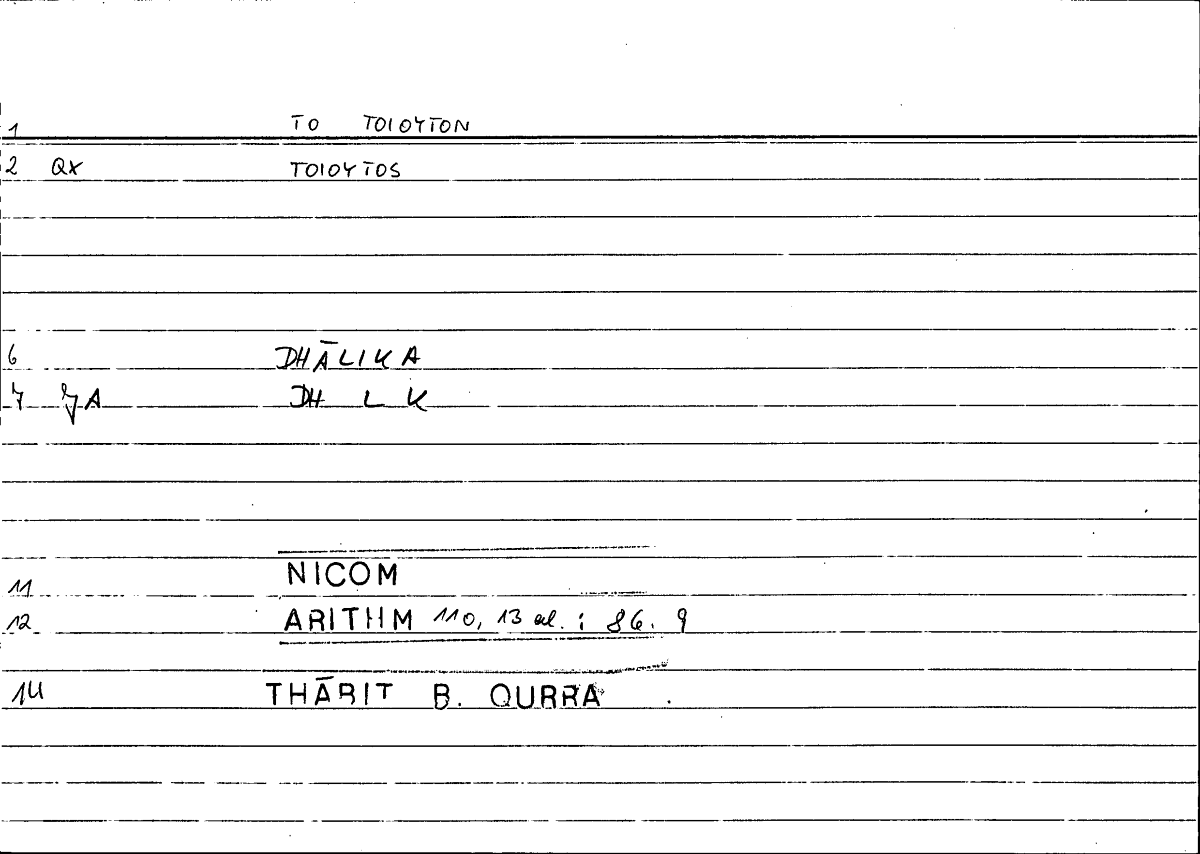 1 TO TOIOYTON
2 QX TOIOYTOS
6 DHĀLIKA
7 JA DH L K
11 NICOM
12 ARITHM 110, 13 al. ; 86. 9
14 THĀBIT B. QURRA